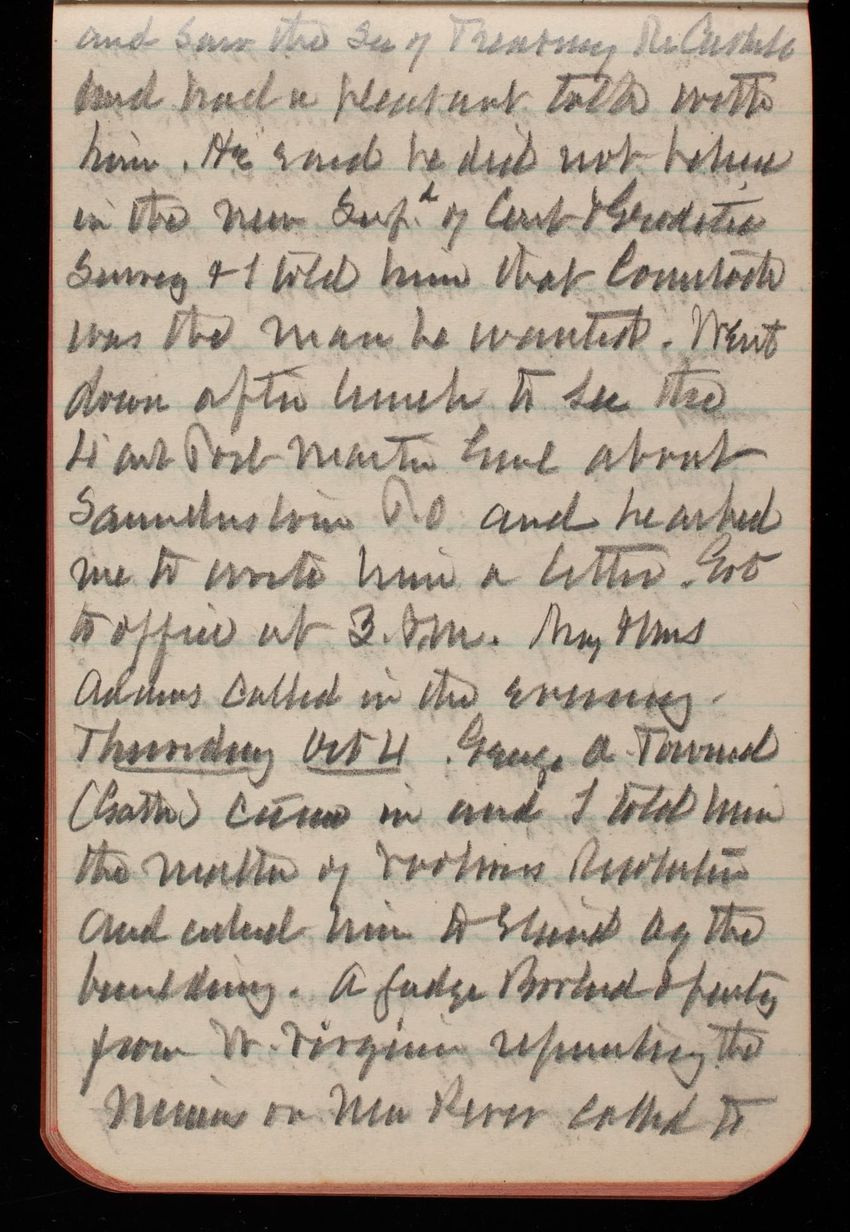 and saw the Sec of Treasury Mr Carlisle
and had a pleasant talk with
him. He said he did not believe
in the new Supt of Coast & Geodetic
Survey & I told him that Comstock
was the man he wanted. Went
down after lunch to see the
4 ast Post Master Genl about
Saunderstown P.O and he asked
me to write him a letter. Got
to office at 3. P.M. Maj & Mrs
Adams called in the evening.
Thursday Oct 4. George A Townsend
(Gath) came in and I told him
the matter of Resolution
and asked him to stand by the
building. A Judge & party
from W. Virginia representing the
on New River called to